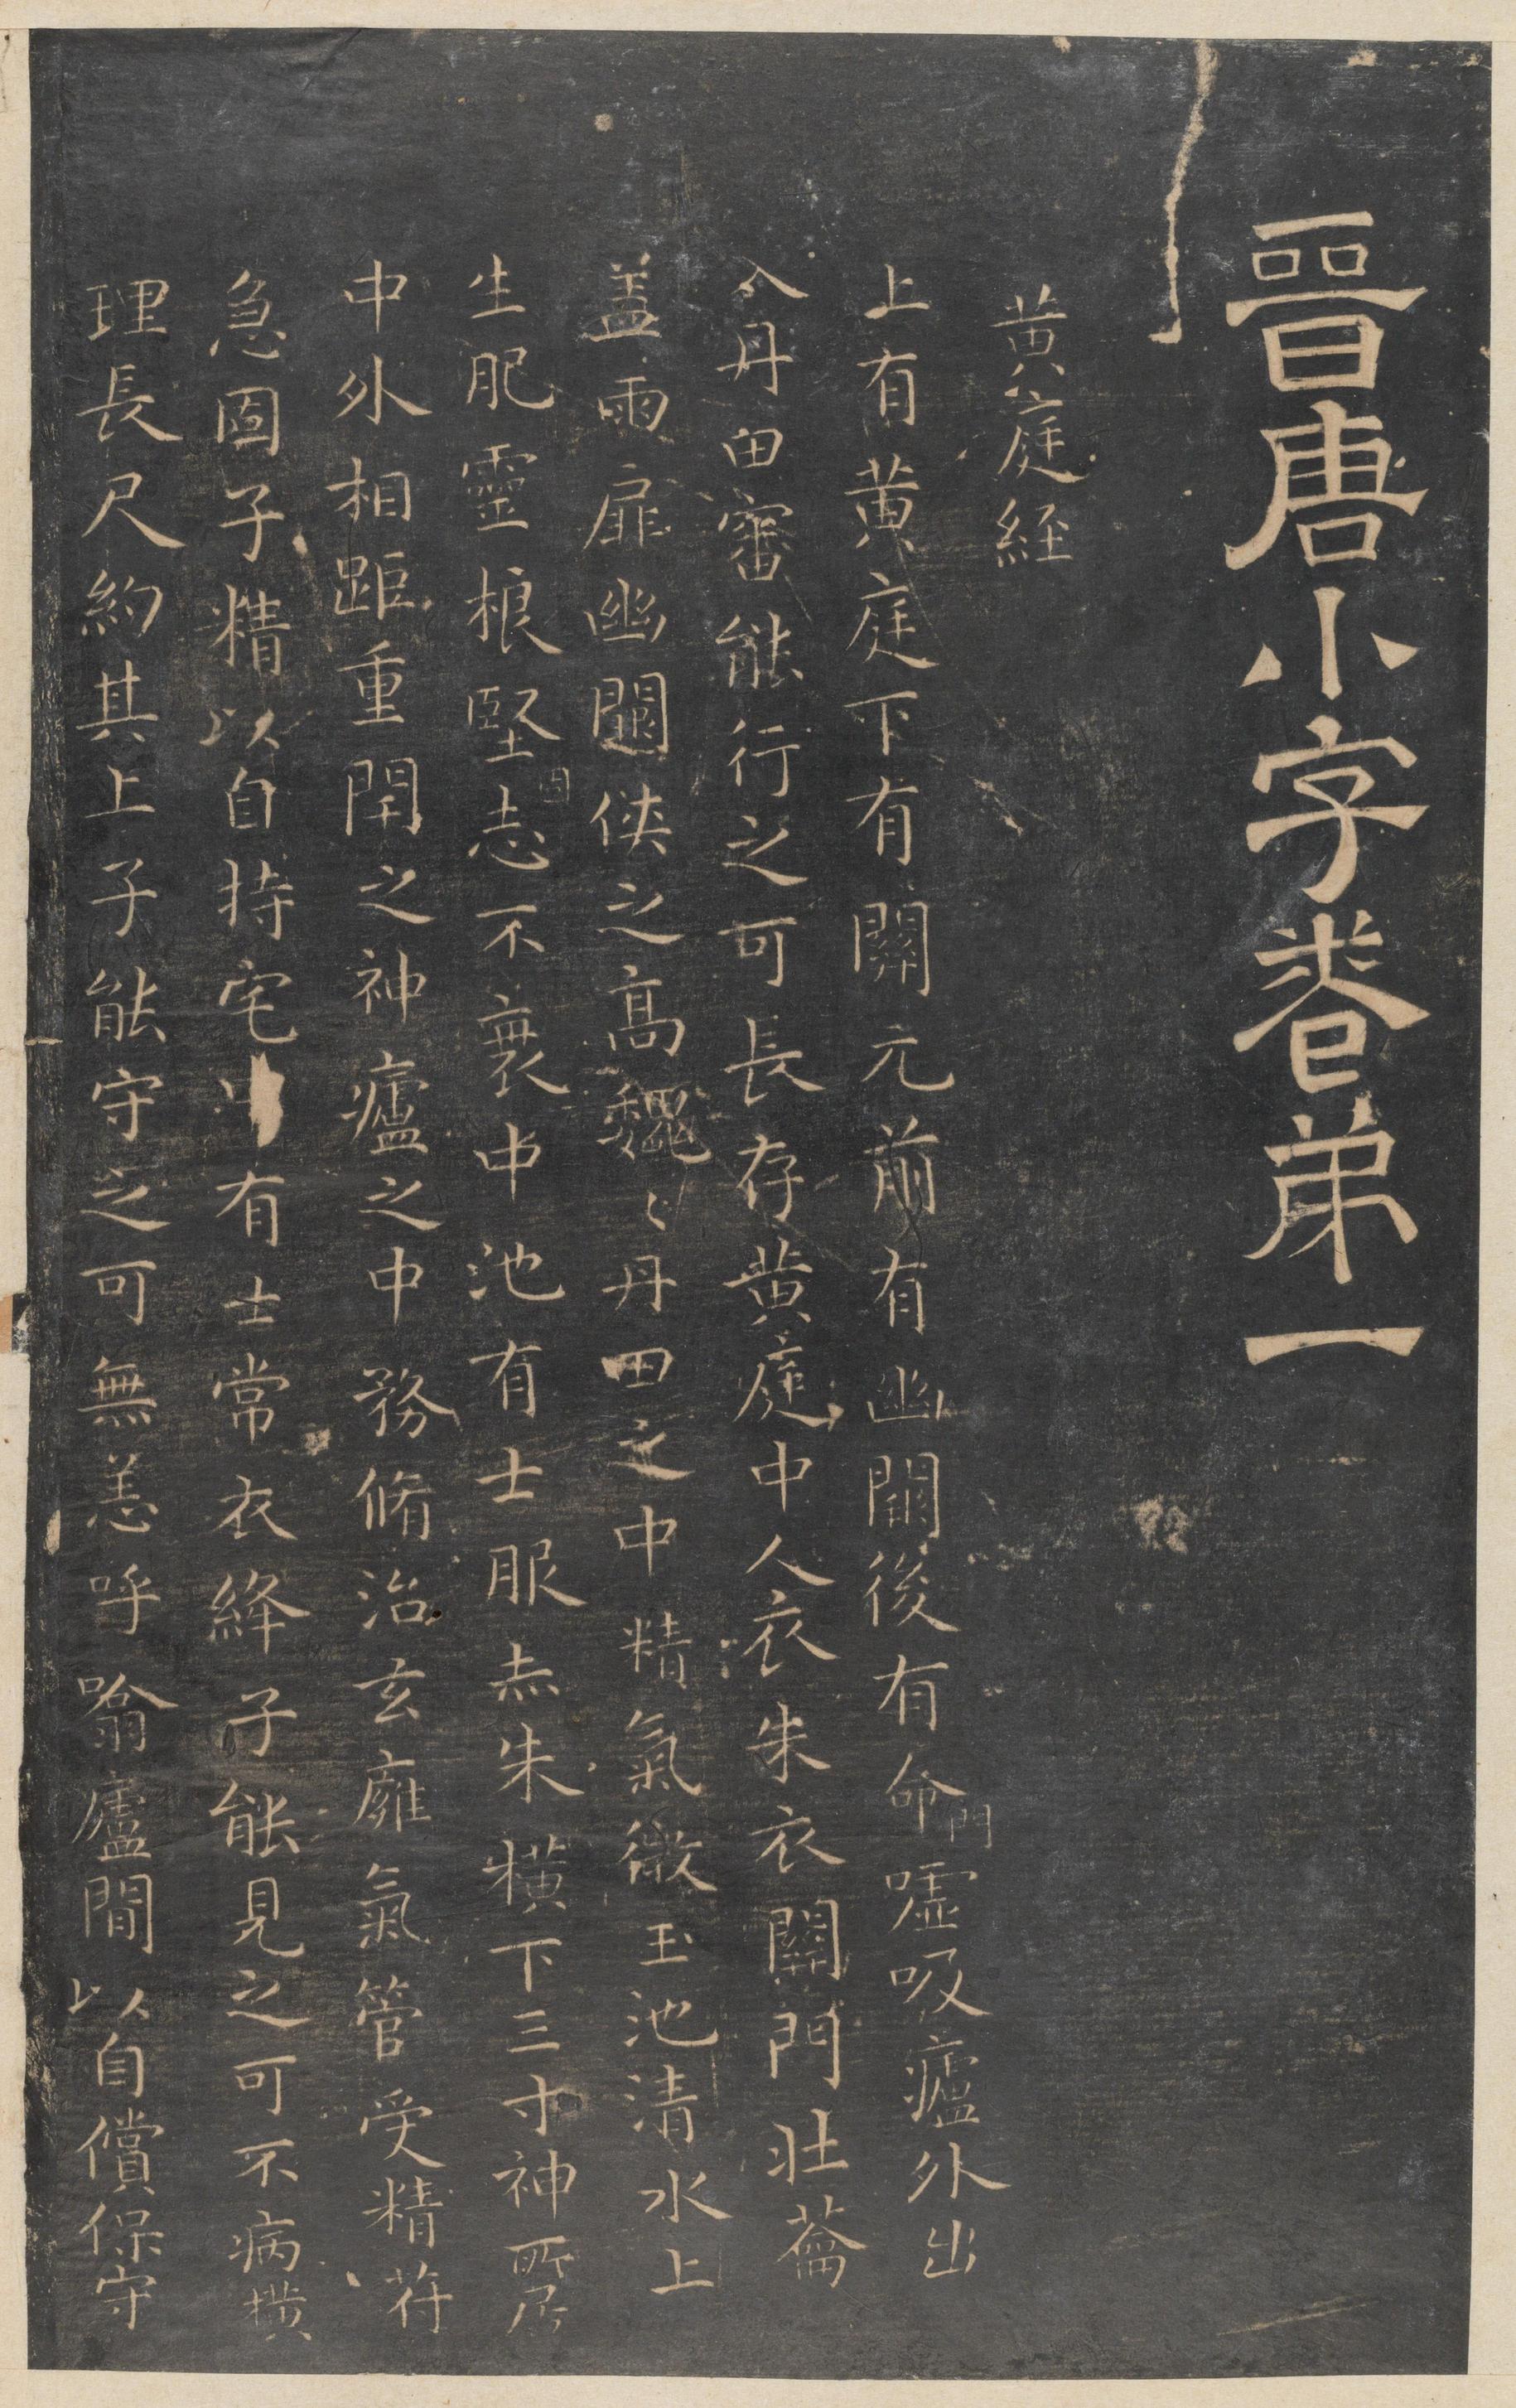 晉唐小字卷弟一
黃庭經
上有黃庭下有關元前有幽闕後有命門噓吸廬外出
入丹田審能行之可長存黃庭中人衣朱衣關門壯蘥
蓋兩扉幽闕俠之高巍〻丹田之中精氣微玉池清水上
生肥靈根堅固志不衰中池有士服赤朱橫下三寸神所居
中外相距重閉之神廬之中務脩治玄廱氣管受精符
急固子精以自持宅中有士常衣絳子能見之可不病橫
理長尺約其上子能守之可無恙呼噏廬間以自償保守